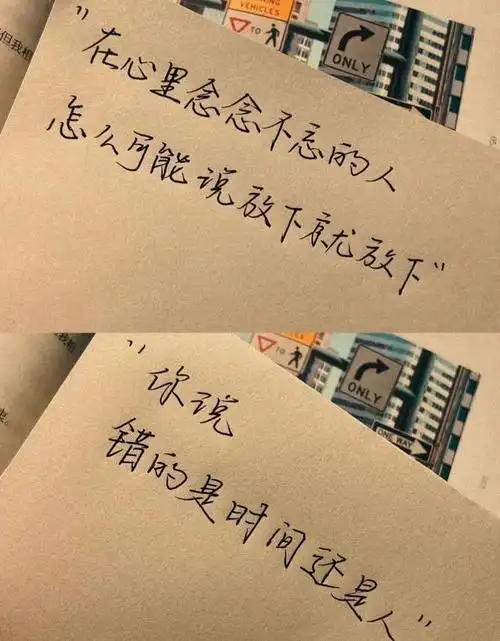 但我相
VEHICLES
TO
ONLY
"在心里念念不忘的人
怎么可能说放下就放下"
TO
ONLY
ONE WAY
"你说
错的是时间还是人"